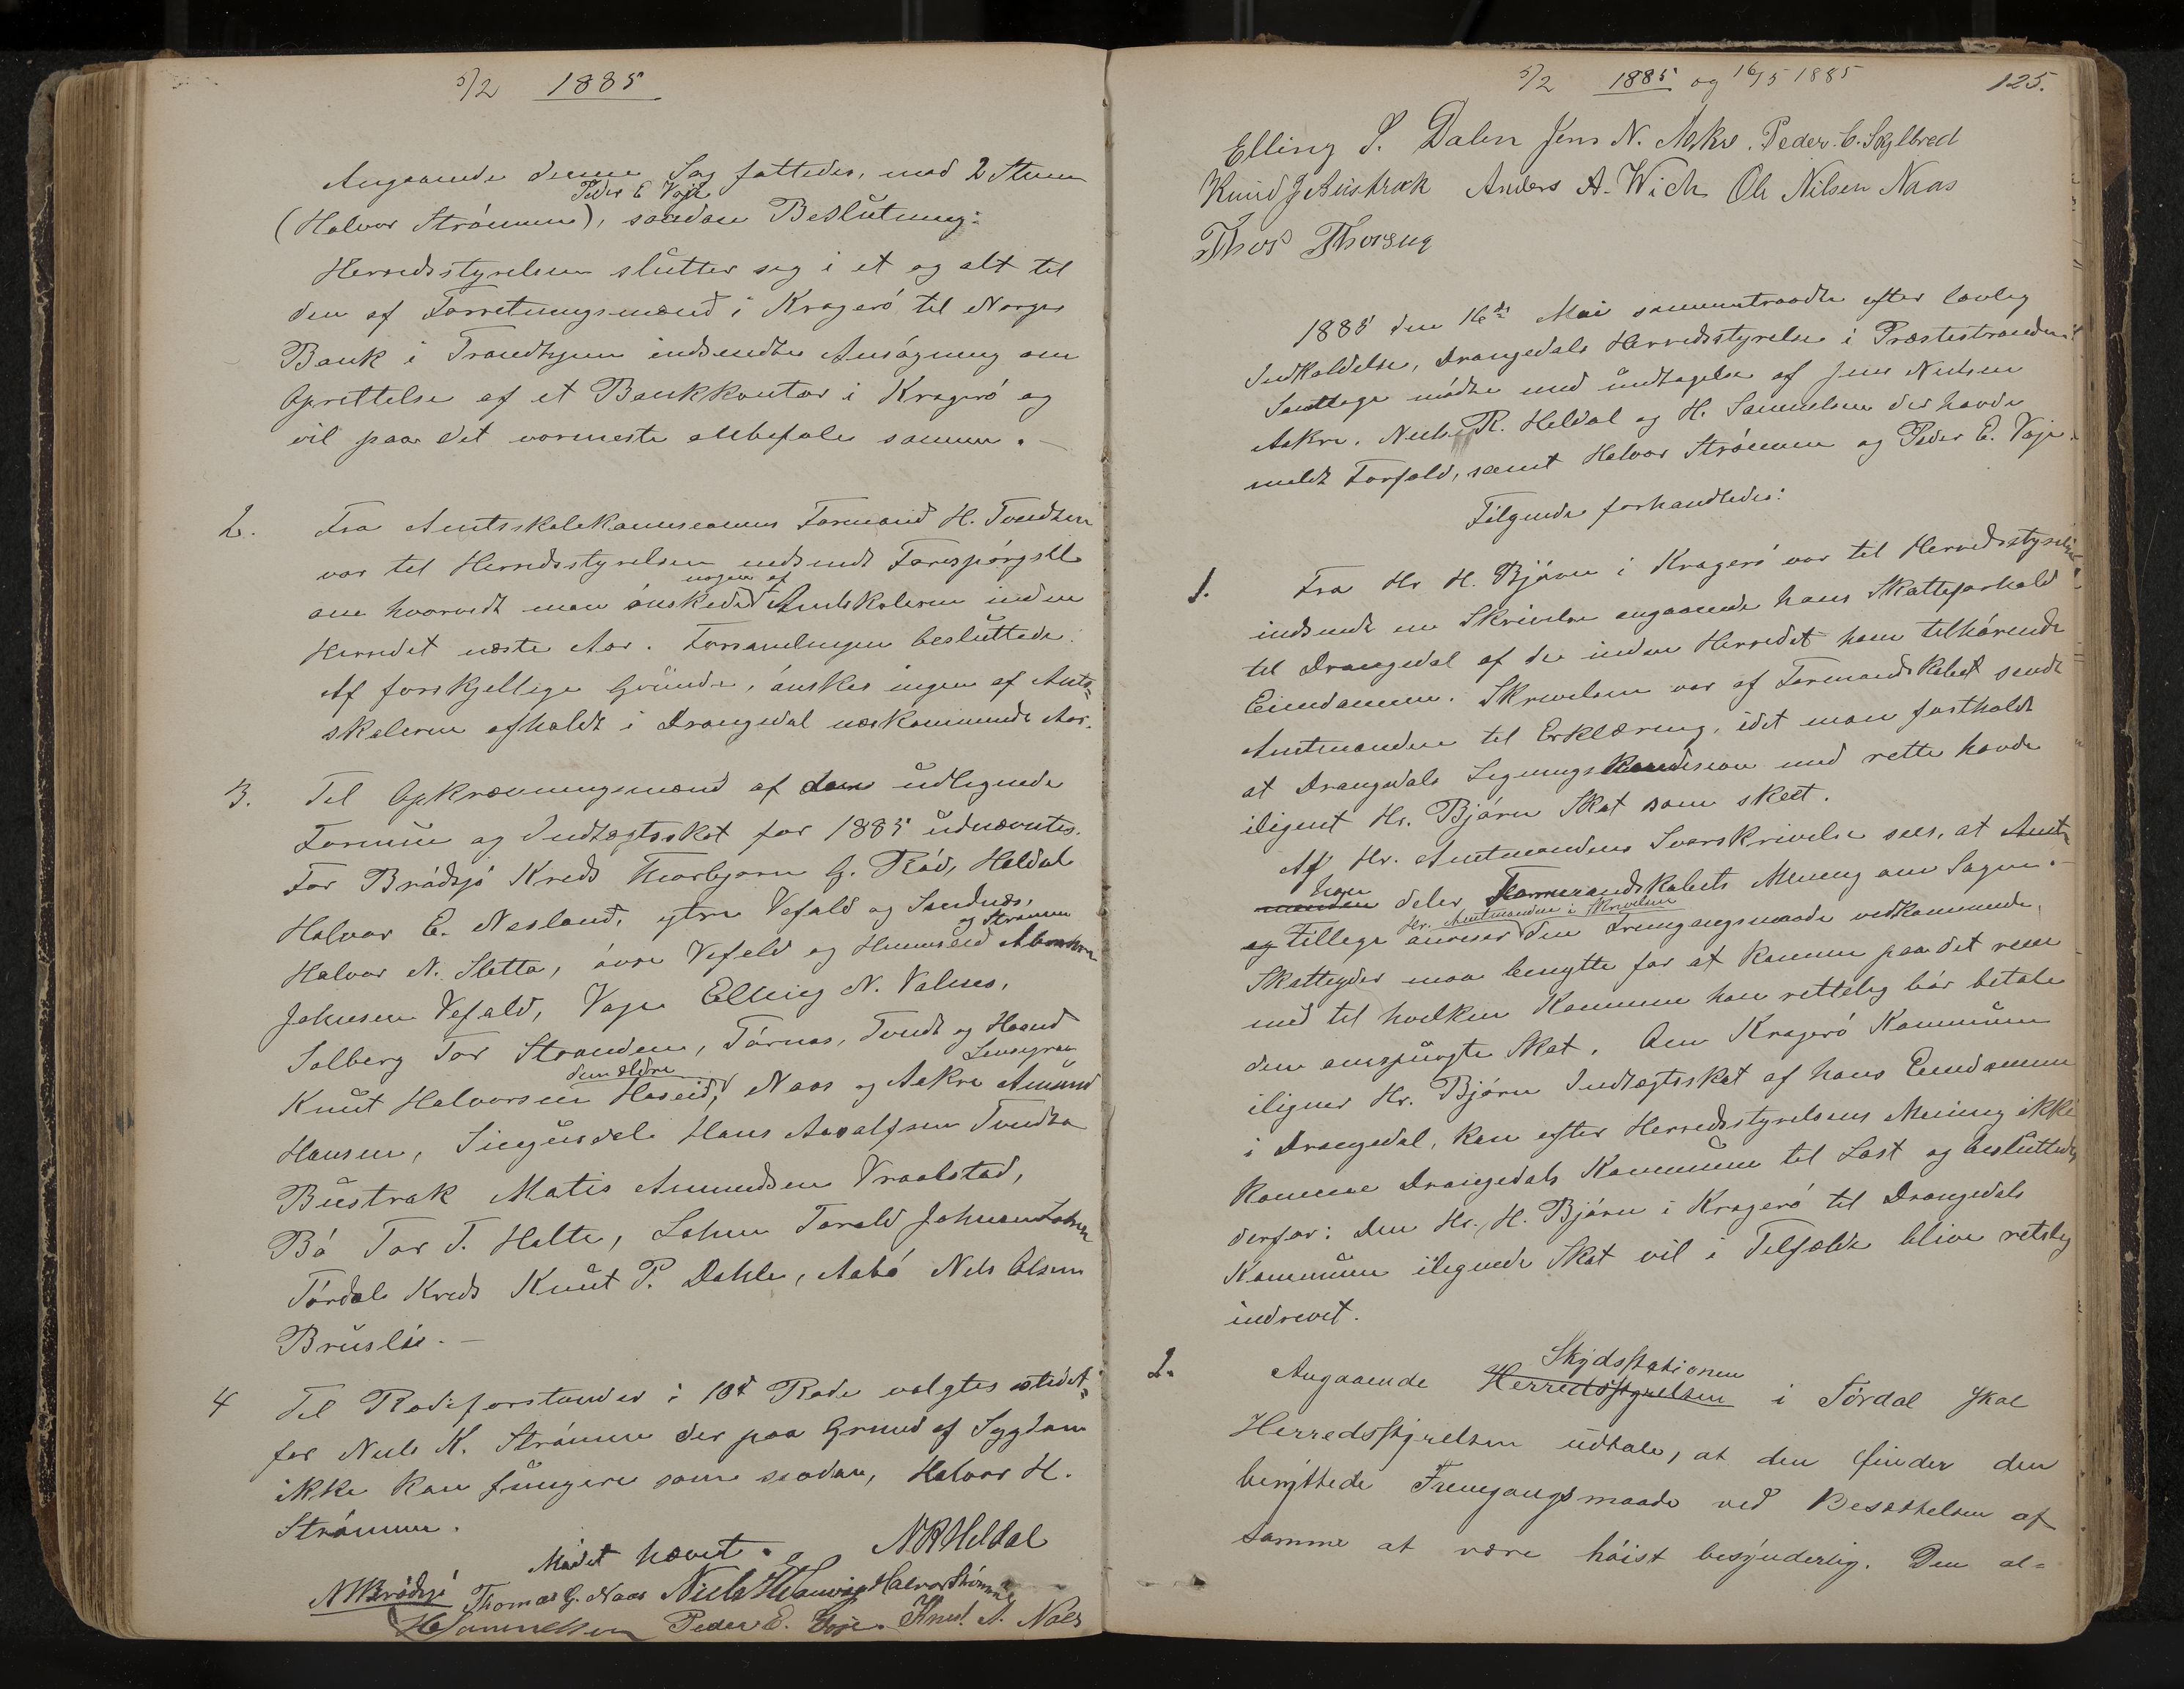 5/2 1885
Angaaende denne Sag fattedes, mod 2 Stemmer
Peder E Voje
(Halvor Strömme), saadan Beslutning:
Herredsstyrelsen slutter sig i et og alt til
den af Forretningsmænd i Kragerö til Norges
Bank i Trondhjem indsendte Ansögning om
Oprettelse af et Bankkontor i Kragerö og
vil paa det varmeste anbefale samme. –
2. Fra Amtsskolekommissionens Formand H. Tvedten
var til Herredsstyrelsen indsendt Forespörgsel
nogen af
om hvorvidt man önskede Amtskolerne inden
Herredet næste Aar. Forsamlingen besluttede:
Af forskjellige Grunde, önskes ingen af Amts=
skolerne afholdt i Drangedal næstkommende Aar.
3. Til Opkrævningsmænd af den udlignede
Formue og Indtægtsskat for 1885 udnævntes.
For Brödsjö Kreds Thorbjørn G. Röd, Heldal
Halvor E. Nesland, ytre Vefald og Sandnæs,
og Strömme
Halvor N. Sletta, övre Vefald og Henseid Abraham
Johnsen Vefald, Voje Elling N. Valnes,
Solberg Tor Stranden, Törnes, Tvedt og Haand
den ældre Lensegrav
Knut Halvorsen Haseid, Naas og Aakre Amund
Hansen, Singusdal Hans Aasalfsen Tvedten
Bustrak Matis Amundsen Vraalstad,
Bö Tor T. Holte, Lohne Torald Johnsen Lohne
Tördal Kreds Knut P. Dahle, Aabö Nils Olsen
Bruslie. –
4 Til Rodeforstander i 10de Rode valgtes istedet=
for Niels K. Strömme der paa Grund af Sygdom
ikke kan fungere som saadan, Halvor H.
Strömme.
Mödet hævet. N R Heldal
N Brödsjö Thomas G. Naas Niels Halvor Strömme
H Samuelsen Peder E. Voje. Knud A. Naes
5/2 1885 og 16/5 1885 125.
Elling S. Dalen Jens N. Aakre. Peder. C. Skjelbred
Knud J Bustrak Anders A. Wich Ole Nilsen Naas
Thor Thorsen
1885 den 16de Mai sammentraadte efter lovlig
Indkaldelse, Drangedals Herredsstyrelse i Præstestranden.
Samtlige mödte med undtagelse af Jens Nielsen
Aakre. Niels R. Heldal og H. Samuelsen der havde
meldt Forfald, samt Halvor Strömme og Peder E. Voje.
Fölgende forhandledes:
1. Fra Hr H. Björn i Kragerö var til Herredsstyrelsen
indsendt en Skrivelse angaaende hans Skatteforhold
til Drangedal af de inden Herredet ham tilhörende
Eiendomme. Skrivelsen var af Formandskabet sendt
Amtmanden til Erklæring, idet man fastholdt
at Drangedals Ligningskommission med rette havde
ilignet Hr. Björn Skat som skeet.
Af Hr. Amtmandens Svarskrivelse sees, at Amt-
han
manden deler Formandskabets Mening om Sagen. –
Hr. Amtmanden i Skrivelsen
og tillige anviser den Fremgangsmaade vedkommende
Skatteyder maa benytte for at komme paa det rene
med til hvilken Kommune han rettelig bör betale
den omspurgte Skat. Om Kragerö Kommune
iligner Hr. Björn Indtægtsskat af hans Eiendomme
i Drangedal, kan efter Herredsstyrelsens Mening ikke
komme Drangedals Kommune til Last og besluttedes
derfor: Den Hr. H. Björn i Kragerö til Drangedals
Kommune ilignede Skat vil i Tilfælde blive retslig
indrevet.
Skydsstationen
2. Angaaende Herredsstyrelsen i Tördal skal
Herredsstyrelsen udtale, at den finder den
benyttede Fremgangsmaade ved Besættelsen af
samme at være höist besynderlig. Den al=